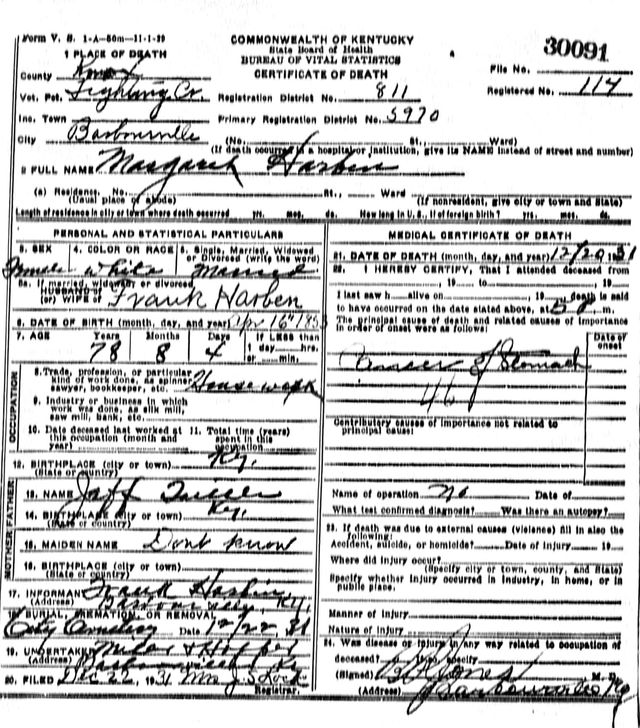 Form V. S. 1-A-50m-11-1-29
COMMONWEALTH OF KENTUCKY
State Board of Health
BUREAU OF VITAL STATISTICS
CERTIFICATE OF DEATH
30091
File No.
Registered No. 114
1 PLACE OF DEATH
County Knox
Vot. Pct. Fighting Cr. Registration District No. 811
Inc. Town Primary Registration District No. 5970
City Barbourville (No. St., Ward)
(If death occurred in a hospital or institution, give its NAME instead of street and number)
2 FULL NAME Margaret Harben
(a) Residence. No. St., Ward
(Usual place of abode) (If nonresident, give city or town and State)
Length of residence in city or town where death occurred yrs. mos. ds. How long in U. S., if of foreign birth? yrs. mos. ds.
PERSONAL AND STATISTICAL PARTICULARS
3. SEX 4. COLOR OR RACE 5. Single, Married, Widowed or Divorced (write the word)
Female White Married
5a. If married, widowed, or divorced
HUSBAND of
(or) WIFE of Frank Harben
6. DATE OF BIRTH (month, day, and year) Apr 16th 1853
7. AGE Years Months Days If LESS than
1 day hrs.
or min.
78 8 4
OCCUPATION
8. Trade, profession, or particular
kind of work done, as spinner,
sawyer, bookkeeper, etc. House work
9. Industry or business in which
work was done, as silk mill,
saw mill, bank, etc.
10. Date deceased last worked at
this occupation (month and
year)
11. Total time (years)
spent in this
occupation
12. BIRTHPLACE (city or town) Ky.
(State or country)
FATHER
13. NAME Jeff
14. BIRTHPLACE (city or town) Ky.
(State or country)
MOTHER
15. MAIDEN NAME Dont know
16. BIRTHPLACE (city or town)
(State or country)
17. INFORMANT Frank Harbin
(Address) Barbourville, Ky.
18. BURIAL, CREMATION, OR REMOVAL
City Cemetery Date 12/22, 31
19. UNDERTAKER Miles & Hopper
(Address) Barbourville Ky
20. FILED Dec 22, 1931 Mrs J. S. Lock
Registrar.
MEDICAL CERTIFICATE OF DEATH
21. DATE OF DEATH (month, day, and year) 12/20 1931
22. I HEREBY CERTIFY, That I attended deceased from
, 19 to , 19
I last saw h alive on , 19 death is said
to have occurred on the date stated above, at m.
The principal cause of death and related causes of importance
in order of onset were as follows:
Date of onset
Cancer of Stomach
46
Contributory causes of importance not related to
principal cause:
Name of operation no Date of
What test confirmed diagnosis? Was there an autopsy?
23. If death was due to external causes (violence) fill in also the
following:
Accident, suicide, or homicide? Date of injury 19
Where did injury occur?
(Specify city or town, county, and State)
Specify whether injury occurred in industry, in home, or in
public place.
Manner of Injury
Nature of Injury
24. Was disease or injury in any way related to occupation of
deceased? If so, specify
(Signed) Jones M. D.
(Address) Barbourville Ky